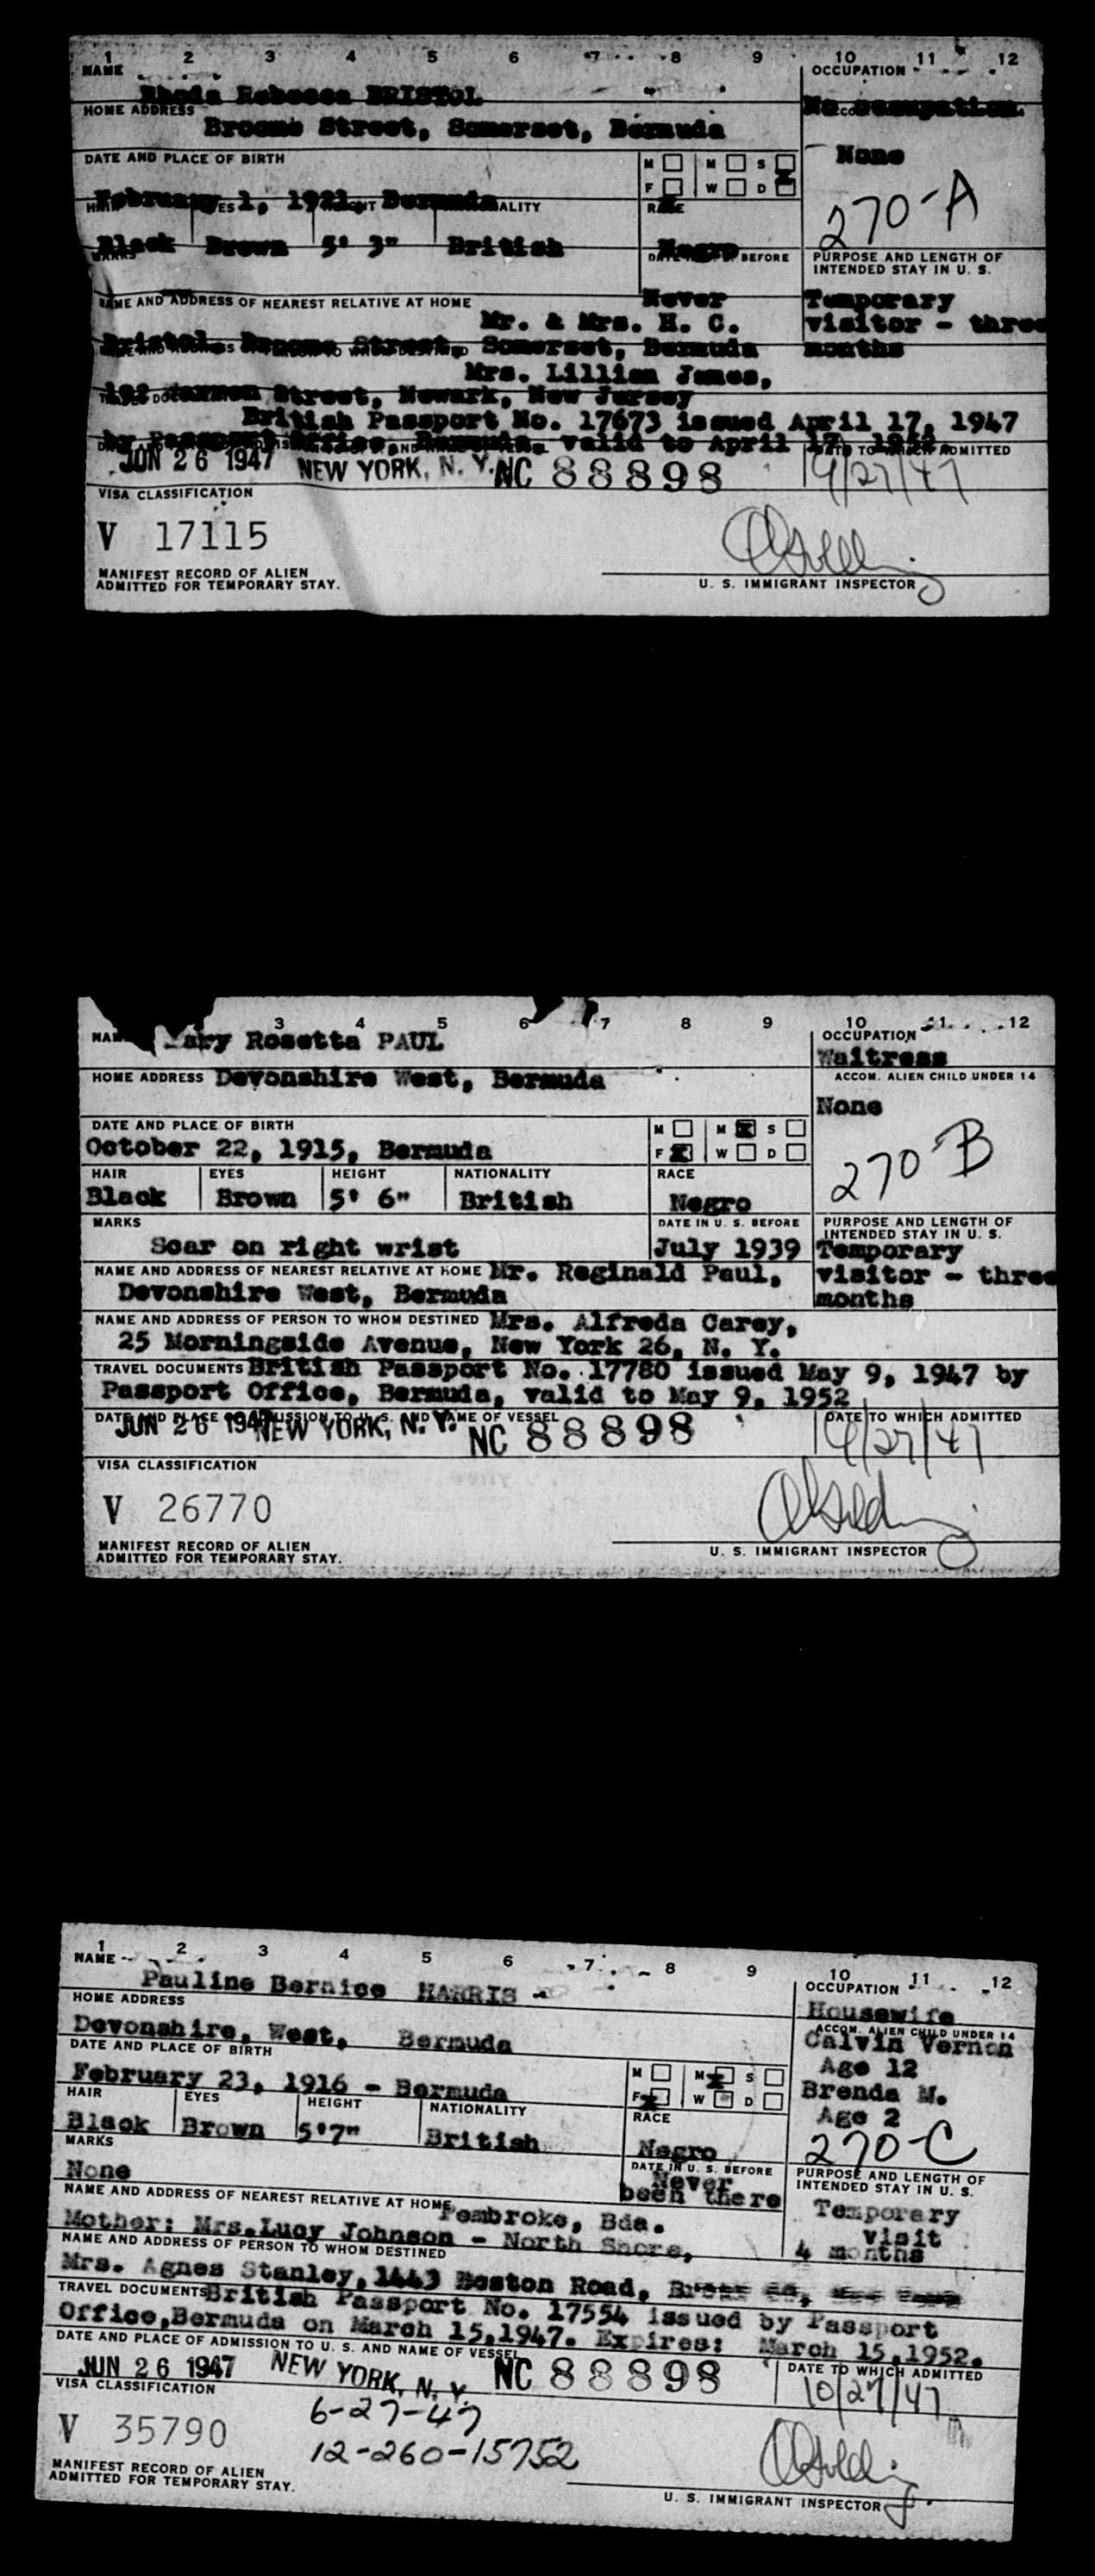 1 2 3 4 5 6 7 8 9 10 11 12
NAME OCCUPATION
Rhoda Rebecca BRISTOL
HOME ADDRESS No occupation.
Broome Street, Somerset, Bermuda
DATE AND PLACE OF BIRTH M M S None
F W D
February 1, 1921, Bermuda RACE 270-A
Black Brown 5' 3" British Negro
BEFORE PURPOSE AND LENGTH OF
INTENDED STAY IN U. S.
NAME AND ADDRESS OF NEAREST RELATIVE AT HOME Never Temporary
Mr. & Mrs. H. C. visitor - three
Bristol, Broome Street, Somerset, Bermuda months
Mrs. Lillian Jones,
Street, Newark, New Jersey
British Passport No. 17673 issued April 17, 1947
by Passport Office, Bermuda, valid to April 17, 1952
JUN 26 1947 NEW YORK, N. Y. NC 88898 9/27/47
VISA CLASSIFICATION
V 17115
MANIFEST RECORD OF ALIEN
ADMITTED FOR TEMPORARY STAY. U. S. IMMIGRANT INSPECTOR
3 4 5 6 7 8 9 10 11 12
NAME Mary Rosetta PAUL OCCUPATION
Waitress
HOME ADDRESS Devonshire West, Bermuda ACCOM. ALIEN CHILD UNDER 14
None
DATE AND PLACE OF BIRTH M M S
October 22, 1915, Bermuda F W D 270 B
HAIR EYES HEIGHT NATIONALITY RACE
Black Brown 5' 6" British Negro
MARKS DATE IN U. S. BEFORE PURPOSE AND LENGTH OF
INTENDED STAY IN U. S.
Scar on right wrist July 1939 Temporary
NAME AND ADDRESS OF NEAREST RELATIVE AT HOME Mr. Reginald Paul, visitor - three
Devonshire West, Bermuda months
NAME AND ADDRESS OF PERSON TO WHOM DESTINED Mrs. Alfreda Carey,
25 Morningside Avenue, New York 26, N. Y.
TRAVEL DOCUMENTS British Passport No. 17780 issued May 9, 1947 by
Passport Office, Bermuda, valid to May 9, 1952
DATE AND PLACE OF ADMISSION TO U. S. AND NAME OF VESSEL DATE TO WHICH ADMITTED
JUN 26 1947 NEW YORK, N. Y. NC 88898 9/27/47
VISA CLASSIFICATION
V 26770
MANIFEST RECORD OF ALIEN
ADMITTED FOR TEMPORARY STAY. U. S. IMMIGRANT INSPECTOR
1 2 3 4 5 6 7 8 9 10 11 12
NAME OCCUPATION
Pauline Bernice HARRIS - Housewife
HOME ADDRESS ACCOM. ALIEN CHILD UNDER 14
Devonshire, West, Bermuda Calvin Vernon
DATE AND PLACE OF BIRTH M M S Age 12
February 23, 1916 - Bermuda F W D Brenda M.
HAIR EYES HEIGHT NATIONALITY RACE Age 2
Black Brown 5'7" British Negro 270-C
MARKS DATE IN U. S. BEFORE PURPOSE AND LENGTH OF
INTENDED STAY IN U. S.
None Never been there Temporary
NAME AND ADDRESS OF NEAREST RELATIVE AT HOME Pembroke, Bda. visit
Mother: Mrs.Lucy Johnson - North Shore, 4 months
NAME AND ADDRESS OF PERSON TO WHOM DESTINED
Mrs. Agnes Stanley, 1443 Boston Road,
TRAVEL DOCUMENTS British Passport No. 17554 issued by Passport
Office,Bermuda on March 15,1947. Expires: March 15,1952.
DATE AND PLACE OF ADMISSION TO U. S. AND NAME OF VESSEL DATE TO WHICH ADMITTED
JUN 26 1947 NEW YORK, N. Y. NC 88898 10/27/47
VISA CLASSIFICATION 6-27-47
V 35790 12-260-15752
MANIFEST RECORD OF ALIEN
ADMITTED FOR TEMPORARY STAY. U. S. IMMIGRANT INSPECTOR